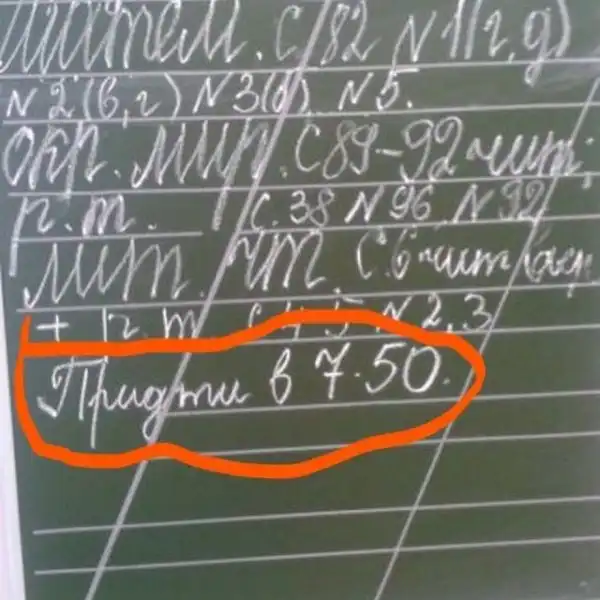 Матем. с 82 N 1(г, д)
N 2 (в, г) N 3(б) N 5.
Окр. мир. с 89-92 чит,
р. т. с. 38 N 96 N 92
Лит. чт. с 6 чит
+ р. т. с 4-5 N 2, 3
Придти в 7.50.